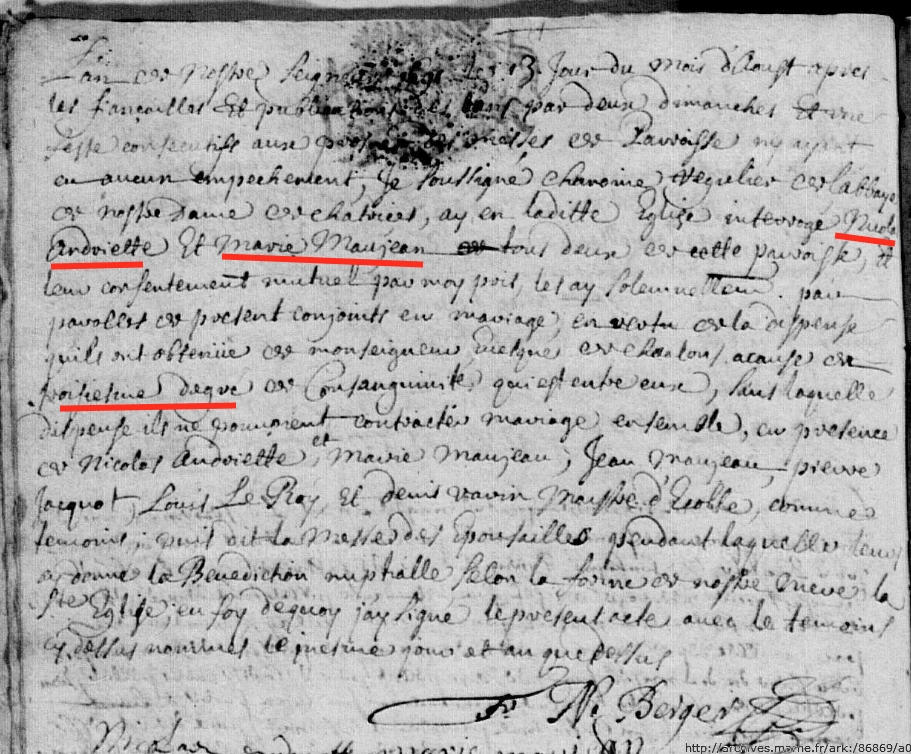 L'an de Nostre Seigneur le 13 Jour du mois d'Aoust apres
les fiançailles Et publications des bans par deux dimanches Et une
feste consecutifs aux prosnes des messes de Paroisse ny ayant
eu aucun empechement, Je soussigné chanoine regulier de l'abbaye
de nostre Dame de chatrices, ay en laditte Eglise interrogé Nicolas
Andriette Et Marie Maujean tous deux de cette paroisse, et
leur consentement mutuel par moy pris, les ay solemnellem. par
parolles de present conjoints en mariage, en vertu de la dispense
quils ont obtenüe de monseigneur Evesque de chaalons acause du
troisiesme degré de Consanguinité qui est entre eux, sans laquelle
dispense ils ne pouvoient contracter mariage ensemble, en presence
de Nicolas Andriette, et Marie Maujean, Jean Maujean, pierre
Jacquot, Louis Le Roy, Et denis varin Maistre d'Escolle, comme
temoins; puis dit la Messe des Epousailles pendant laquelle leur
ay donné la Benediction nuptialle selon la forme de nostre mere la
Ste Eglise, en foy dequoy j'ay signé le present acte avec le temoins
cy dessus nommés le mesme jour et an que dessus
Fr. N. Berger
Nicolas
http://archives.marne.fr/ark:/86869/a0